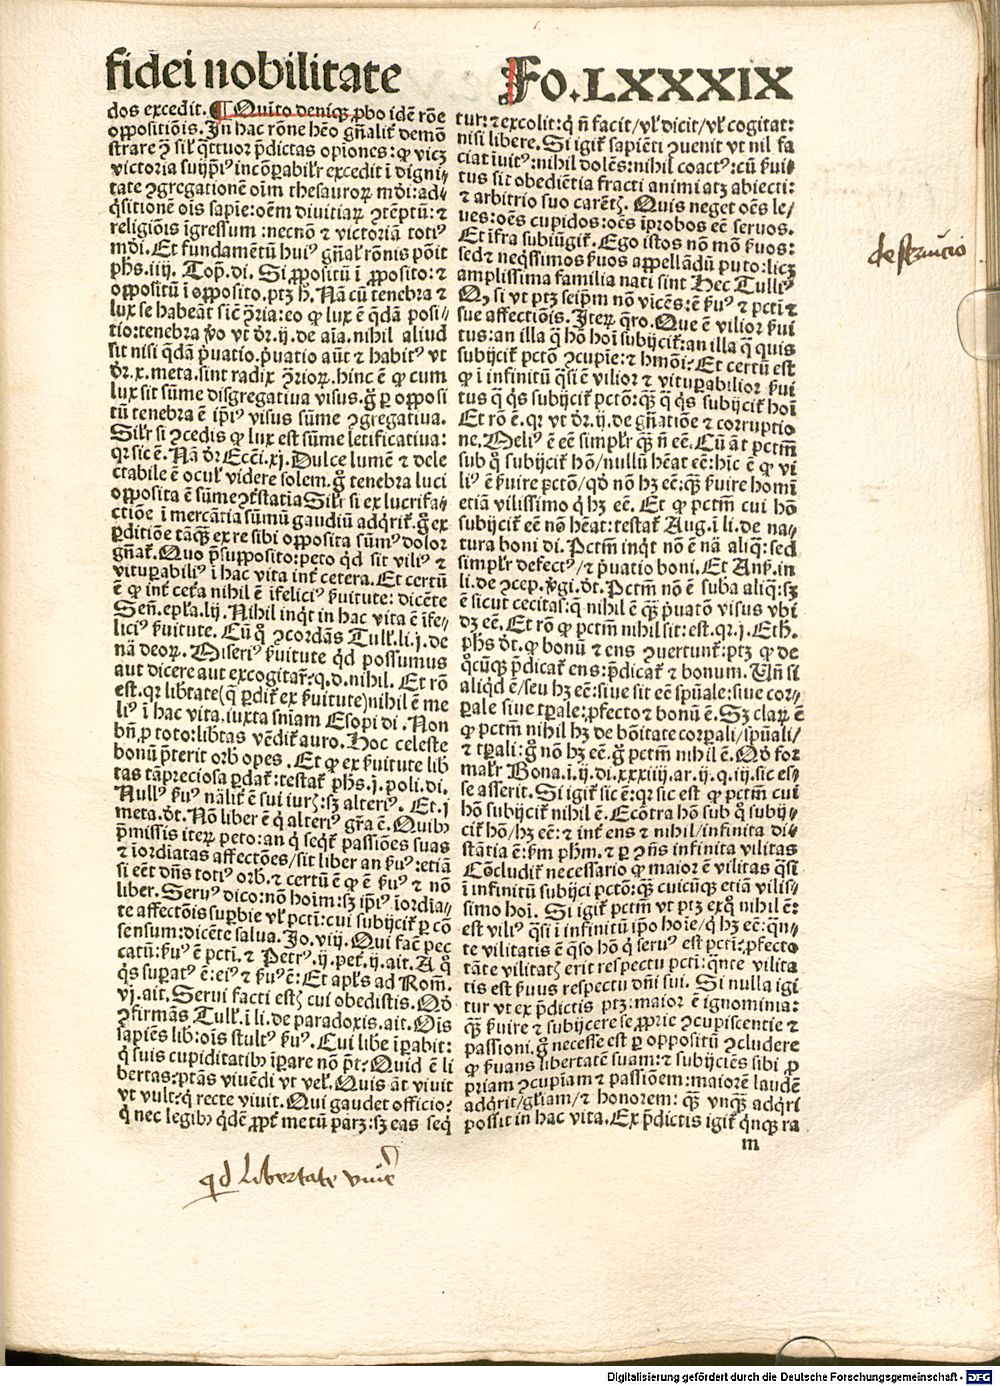 fidei nobilitate
Fo. LXXXIX
dos excedit. ¶ Quīto deniqꝫ ꝓbo idē rōe
oppositiōis. In hac rōne hēo gn̄alit demō
strare ꝙ sil' q̄ttuor p̄dictas opiones: ꝙ vicꝫ
victoria suijp̄i incōparabilr excedit ī digni-
tate ꝯgregationē oīm thesauroꝝ mōi: ad-
q̇sitionē oīs sapīe: oēm divitiaꝝ ꝯtēptū: ⁊
religiōis īgressum: necnō ⁊ victoriā toti⁹
mōi. Et fundamētū hui⁹ gn̄al' rōnis pōit
ph̄s. iiij. Top̄. di. Si ꝓpositū ī ꝓposito: ⁊
oppositū ī opposito. ptꝫ h̄. Nā cū tenebra ⁊
lux se habeāt sic ꝯ̄ria: eo ꝙ lux ē q̄dā posi-
tio: tenebra v̄o vt dr̄. ij. de aīa. nihil aliud
sit nisi q̄dā p̄uatio. p̄uatio aūt ⁊ habit⁹ vt
dr̄. x. meta. sint radix ꝯ̄rioꝝ. hinc ē ꝙ cum
lux sit sūme disgregatiua visus. g̊ ꝑ opposi
tū tenebra ē ip̄i⁹ visus sūme ꝯgregatiua.
Silr si ꝯcedis ꝙ lux est sūme letificatiua:
qr sic ē. Nā dr̄ Eccī. xj. Dulce lumē ⁊ dele
ctabile ē ocul' videre solem. g̊ tenebra luci
opposita ē sūme ꝯt̄statia Silr si ex lucrifa-
ctiōe ī mercātia sūmū gaudiū adq̇rit̄. g̊ ex
ꝑditiōe tāq̄ꝫ ex re sibi opposita sūm⁹ dolor
gn̄at̄. Quo p̄supposito: peto q̇d sit vili⁹ ⁊
vituꝑabili⁹ ī hac vita int̄ cetera. Et certū
ē ꝙ int̄ cet̄a nihil ē īfelici⁹ ẜuitute: dicēte
Sen̄. ep̄la. lij. Nihil inq̇t in hac vita ē īfe-
lici⁹ ẜuitute. Cū q̊ ꝯcordās Tull'. li. j. de
nā deoꝝ. Miseri⁹ ẜuitute q̇d possumus
aut dicere aut excogitar̄: q. d. nihil. Et rō
est. qr lib̄tate (q̄ ꝑdit̄ ex ẜuitute) nihil ē me
li⁹ ī hac vita. iuxta sn̄iam Esopi di. Non
bn̄ ꝓ toto: lib̄tas vēdit̄ auro. Hoc celeste
bonū p̄terit orb̄ opes. Et ꝙ ex ẜuitute lib̄
tas tā preciosa ꝑdat̄: testat̄ ph̄s. j. poli. di.
Null⁹ ẜu⁹ nālit̄ ē sui iurꝭ: sꝫ alteri⁹. Et. j
meta. dt̄. Nō liber ē q̇ alteri⁹ gr̄a ē. Quibꝫ
p̄missis iteꝝ peto: an q̇ seq̇t̄ passiōes suas
⁊ īordīatas affectōes / sit liber an ẜu⁹: etiā
si eēt dn̄s toti⁹ orb̄. ⁊ certū ē ꝙ ē ẜu⁹ ⁊ nō
liber. Seru⁹ dico: nō hoīm: sꝫ ip̄i⁹ īordīa-
te affectōis suꝑbie vl' pcti: cui subijcit̄ ꝑ cō
sensum: dicēte salua. Jo. viij. Qui facit pec
catū: ẜu⁹ ē pcti. ⁊ Petr⁹. ij. pet. ij. ait. A q̊
q̇s suꝑat⁹ ē: ei⁹ ⁊ ẜu⁹ ē: Et apl̄s ad Rom̄.
vj. ait. Serui facti estꝭ cui obedistis. Qd̄
ꝯfirmās Tull'. ī li. de paradoxis. ait. Oīs
sapiēs lib̄: oīs stult⁹ ẜu⁹. Cui libe īꝑabit:
q̇ suis cupiditatibꝫ īꝑare nō pt̄: Quid ē li
bertas: ptās viuēdi vt vel'. Quis āt viuit
vt vult: q̇ recte viuit. Qui gaudet officio:
q̇ nec legibꝫ q̇dē ꝓpt̄ metū parꝫ: sꝫ eas seq̇
tur: ⁊ excolit: q̇ n̄ facit / vl' dicit / vl' cogitat:
nisi libere. Si igit̄ sapiēti ꝯuenit vt nil fa
ciat īuit⁹: nihil dolēs: nihil coact⁹: cū ẜui-
tus sit obediētia fracti animi atꝫ abiecti:
⁊ arbitrio suo carētꝭ. Quis neget oēs le/
ues: oēs cupidos: oēs īprobos eē seruos.
Et īfra subiūgit̄. Ego istos nō mō ẜuos:
sed ⁊ neq̄ssimos ẜuos appellādū puto: licꝫ
amplissima familia nati sint Hec Tulli⁹
Qꝫ si vt ptꝫ seip̄m nō vicēs: ē ẜu⁹ ⁊ pcti ⁊
sue affectiōis. Iteꝝ q̄ro. Que ē vilior ẜui
tus: an illa q̄ hō hoī subijcit̄: an illa q̄ quis
subijcit̄ pctō ꝯcupīe: ⁊ hmōi: Et certū est
ꝙ ī infinitū q̄si ē vilior ⁊ vituꝑabilior ẜui
tus q̄ q̇s subijcit̄ pctō: q̄ꝫ q̄ q̇s subijcit̄ hoī
Et rō ē. qr vt dr̄. ij. de gn̄atiōe ⁊ corruptio
ne. Meli⁹ ē eē simplr q̄ꝫ n̄ eē. Cū āt pctm̄
sub q̊ subijcit̄ hō / nullū hēat eē: hīc ē ꝙ vi
li⁹ ē ẜuire pctō / qd̄ nō hꝫ eē: q̄ꝫ ẜuire homī
etiā vilissimo q̇ hꝫ eē. Et ꝙ pctm̄ cui hō
subijcit̄ eē nō hēat: testat̄ Aug. ī li. de na-
tura boni di. Pctm̄ inq̇t nō ē nā aliq̄: sed
simplr defect⁹ / ⁊ p̄uatio boni. Et Ans̄. in
li. de ꝯcep. v̄gi. dt̄. Pctm̄ nō ē suba aliq̄: sꝫ
ē sicut cecitas: q̄ nihil ē q̄ꝫ p̄uatō visus vbi
dꝫ eē. Et rō ꝙ pctm̄ nihil sit: est. qr. j. Eth.
ph̄s dt̄. ꝙ bonū ⁊ ens ꝯuertunt̄: ptꝫ ꝙ de
q̊cūq̄ꝫ p̄dicat̄ ens: p̄dicat̄ ⁊ bonum. Vn̄ si
aliq̇d ē / seu hꝫ eē: siue sit eē sp̄uale: siue cor-
ꝑale siue tꝑale: ꝑfecto ⁊ bonū ē. Sꝫ claꝝ ē
ꝙ pctm̄ nihil hꝫ de bōitate corꝑali / sp̄uali /
⁊ tꝑali: g̊ nō hꝫ eē. g̊ pctm̄ nihil ē. Qd̄ for
malr Bona. ī. ij. di. xxxiiij. ar. ij. q. iij. sic es-
se asserit. Si igit̄ sic ē: qr sic est ꝙ pctm̄ cui
hō subijcit̄ nihil ē. Ecōtra hō sub q̊ subij-
cit̄ hō / hꝫ eē: ⁊ int̄ ens ⁊ nihil / infinita di-
stātia ē: ẜm phm̄. ⁊ ꝑ ꝯn̄s infinita vilitas
Cōcludit̄ necessario ꝙ maior ē vilitas q̄si
ī infinitū subijci pctō: q̄ꝫ cuicūq̄ꝫ etiā vilis-
simo hoī. Si igit̄ pctm̄ vt ptꝫ exq̊ nihil ē:
est vili⁹ q̄si ī infinitū ip̄o hoīe / q̇ hꝫ eē: q̄n-
te vilitatis ē q̄so hō q̇ seru⁹ est pcti: ꝓfecto
tāte vilitatꝭ erit respectu pcti: q̄nte vilita
tis est ẜuus respectu dn̄i sui. Si nulla igi
tur vt ex p̄dictis ptꝫ: maior ē ignominia:
q̄ꝫ ẜuire ⁊ subijcere se ꝓprie ꝯcupiscentie ⁊
passioni. g̊ necesse est ꝑ oppositū ꝯcludere
ꝙ ẜuans libertatē suam: ⁊ subijciēs sibi ꝓ
priam ꝯcupīam ⁊ passiōem: maiorē laudē
adq̇rit / gl̄iam / ⁊ honorem: q̄ꝫ vnq̄ꝫ adq̇ri
possit in hac vita. Ex p̄dictis igit̄ q̇nqꝫ ra
m
qd libertate viuē